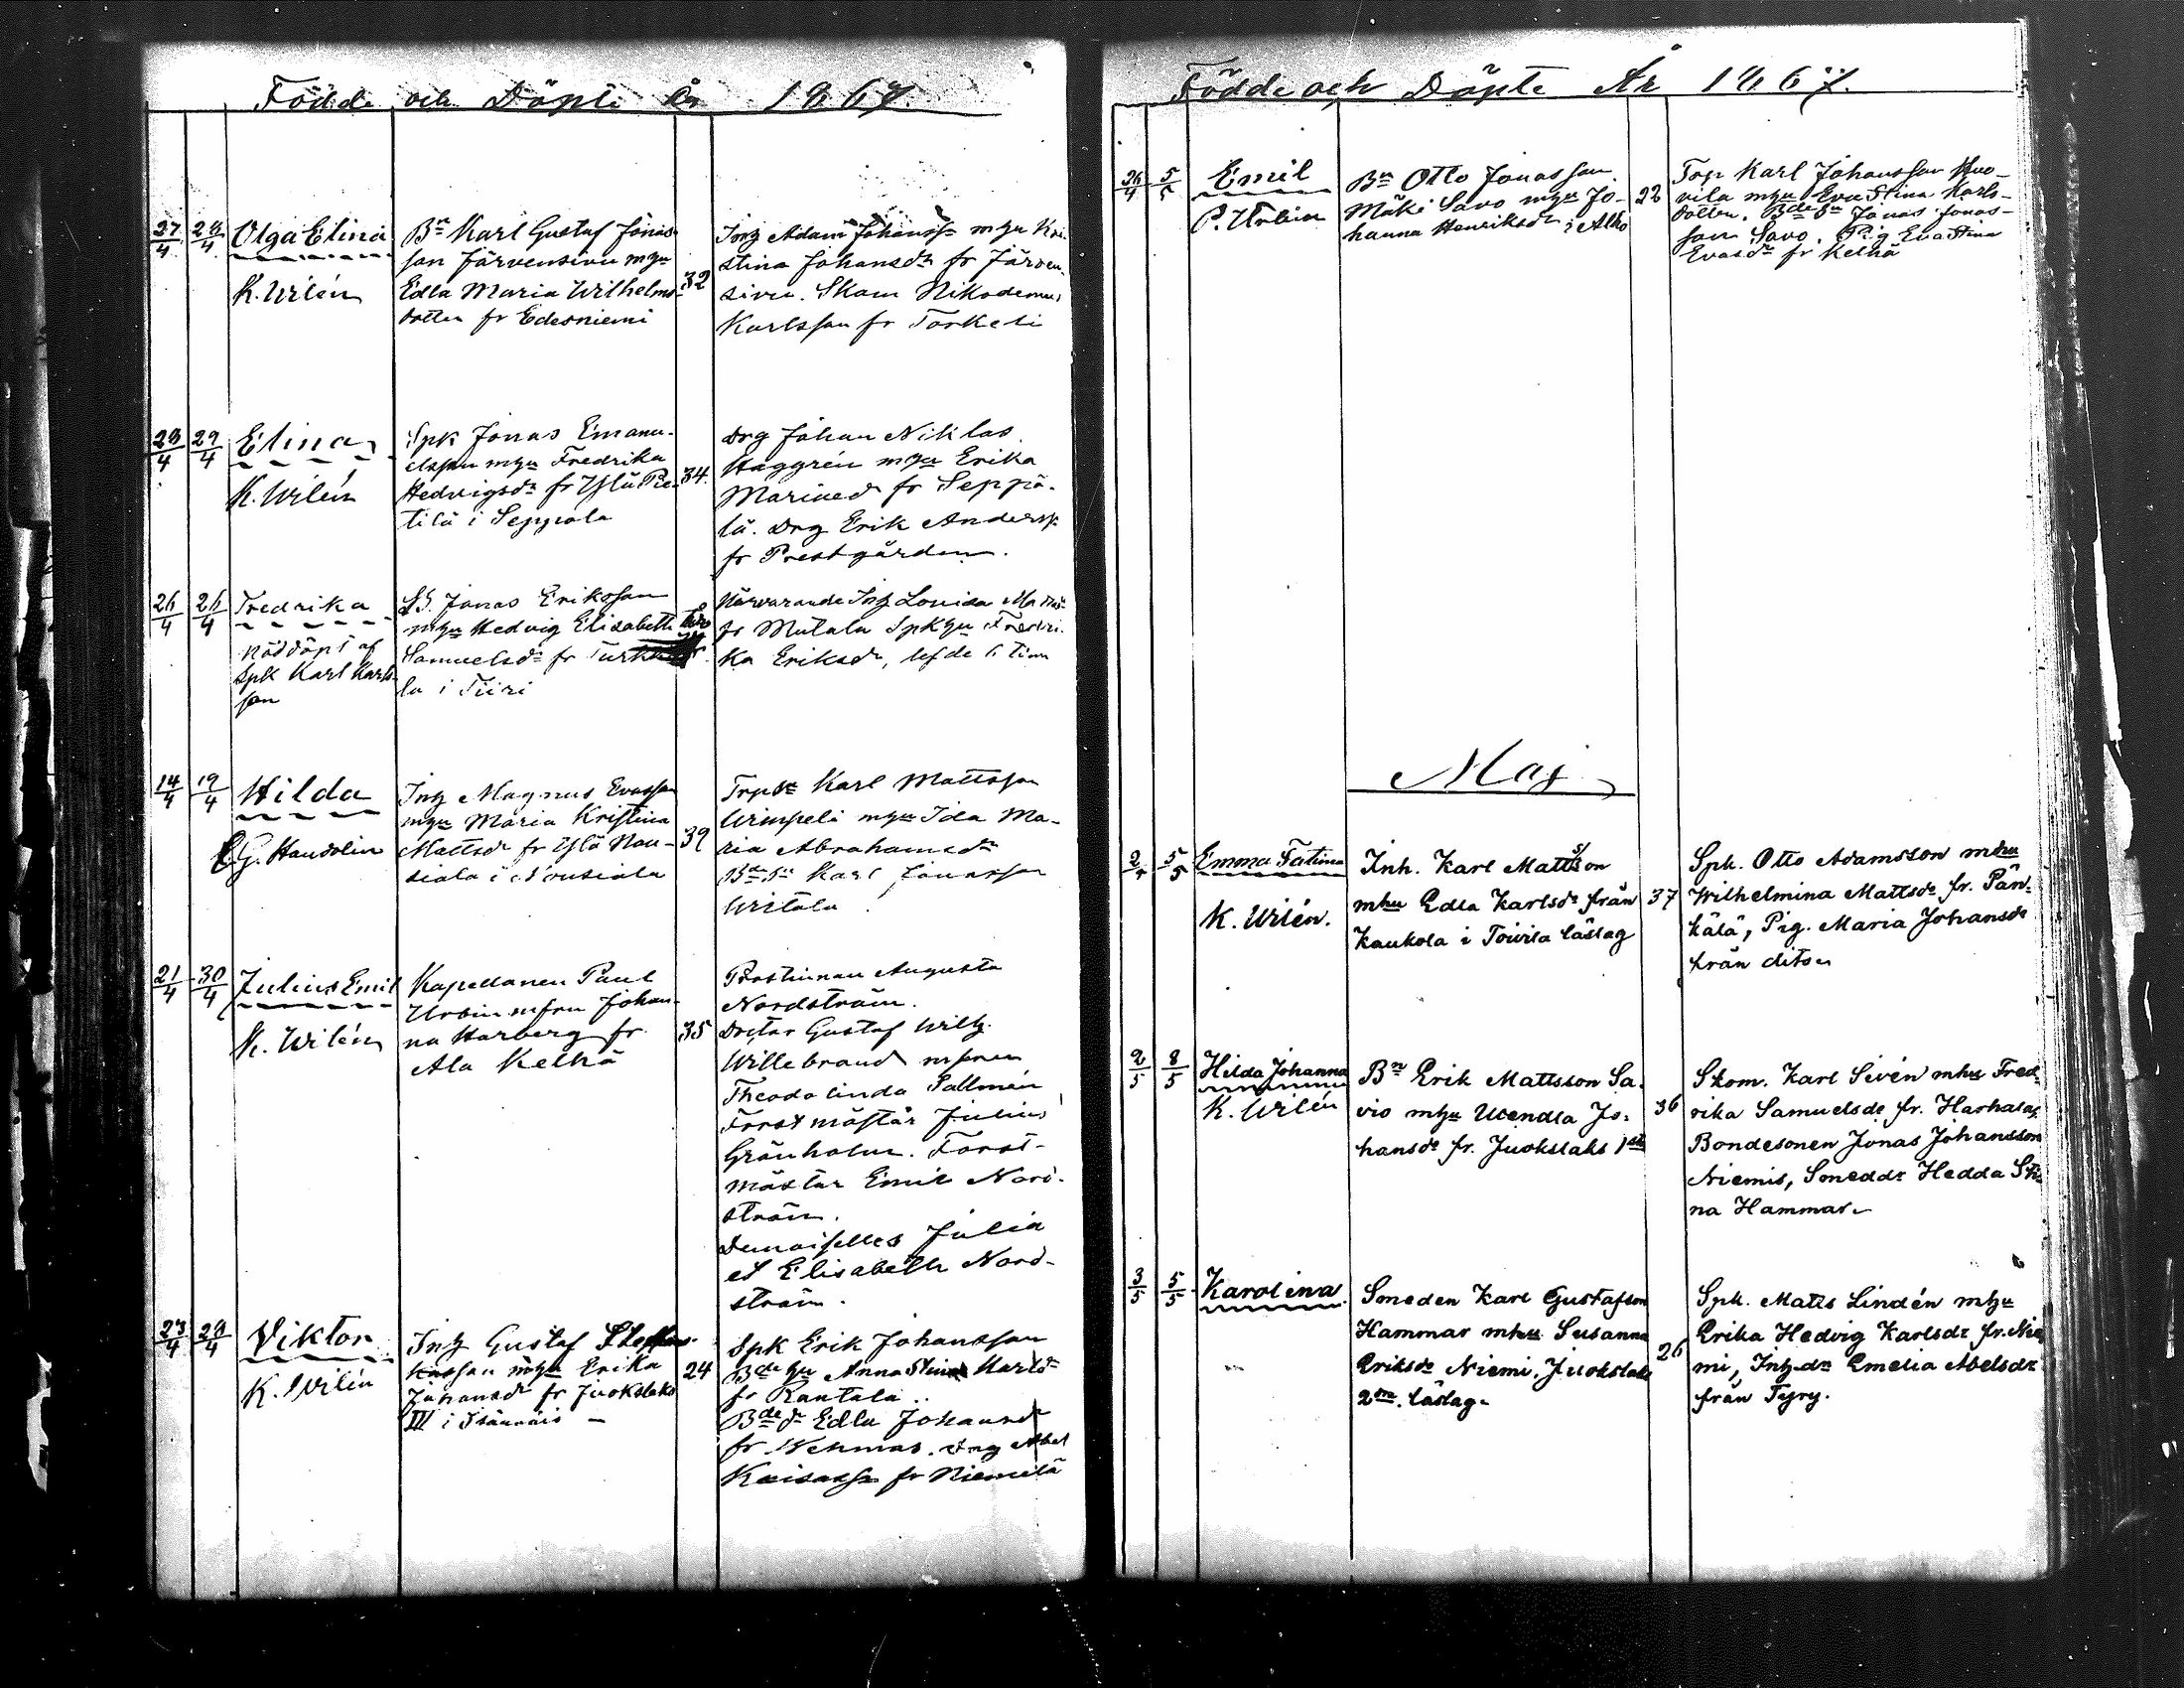 Födde och Döpte År 1867.
27/4 28/4 Olga Elina
K. Wilén
Bn Karl Gustaf Jonas-
son Järvensivu mhu
Edla Maria Wilhelms-
dotter fr Edesniemi
32
Inh Adam Johanss mhu Kri-
stina Johansdr fr Järven-
sivu. Skom Nikodemus
Karlsson fr Torkeli
28/4 29/4 Elina
K. Wilén
Spk Jonas Emanu-
elsson mhu Fredrika
Hedvigsdr fr Ylä Pie-
tilä i Seppälä
34.
Drg Johan Niklas
Häggrén mhu Erika
Mariaed fr Seppä-
lä. Drg Erik Anderss
fr Prestgården.
26/4 26/4 Fredrika
nöddöpt af
Spk Karl Karls-
son
Jonas Eriksson
mhu Hedvig Elisabeth
Samuelsdr fr
la i Tiiri
Närvarande Inh Lovisa
fr Mutala Spkhu Fredri-
ka Eriksdr, lefde 6 tim
14/4 19/4 Hilda
G. Handolin
Inh Magnus Evasson
mhu Maria Kristina
Mattsdr fr Ylä Nou-
siala i Nousiala
39
Karl Mattsson
Wimpeli mhu Ida Ma-
ria Abrahamsdr
Karl Jonasson
Writala
21/4 30/4 Julius Emil
K. Wilén
Kapellanen Paul
Urbin mfru Johan-
na Harberg fr.
Ala Kelhä
35
Prostinnan Augusta
Nordström.
Doctor Gustaf Wilh.
Willebrand mfrun
Theodolinda Sallmén
Forstmästar Julius
Grönholm. Forst-
mästar Emil Nord-
ström.
Demoiselles Julia
et Elisabeth Nord-
ström.
23/4 28/4 Viktor
K. Wilén
Inh Gustaf
mhu Erika
Johansdr fr Juokslaks
III i
24
Spk Erik Johansson
Bdehu Anna Stina Karlsdr
fr Rantala..
Bdedr Edla Johansdr
fr Nehmas. Drg Abel
fr Niemelä
Födde och Döpte År 1867.
26/4 5/5 Emil
P. Urbin
Bn Otto Jonasson
Mäki Savo mhu Jo-
hanna Henriksdr i Alho
22
Torp Karl Johansson Huo-
vila mhu Eva Stina Karls-
dotter. Bdesn Jonas Jonas-
son Savo. Pig Eva Stina
Evasdr fr Kelhä
Maj
2/5 5/5 Emma Fatima
K. Wilén.
Inh. Karl Mattsson
mhu Edla Karlsdr från
Kaukola i Toivila läslag
37
Spk. Otto Adamsson mhu
Wilhelmina Mattsdr fr. Pän-
kälä, Pig. Maria Johansdr
från dito
2/5 8/5 Hilda Johanna
K. Wilén
Bn Erik Mattsson Sa-
vio mhu Wendla Jo-
hansdr fr. Juokslaks 1sta
36
Skom. Karl Sivén mhu Fred-
rika Samuelsdr fr. Harhala,
Bondesonen Jonas Johansson
Niemis, Smeddr Hedda Sti-
na Hammar
3/5 5/5 Karolina.
Smeden Karl Gustafson
Hammar mhu Susanna
Eriksdr Niemi, Juokslaks
2ra läslag
26
Spk. Matts Lindén mhu
Erika Hedvig Karlsdr fr. Nie-
mi, Inhdr Emelia Abelsdr
från Tyry.